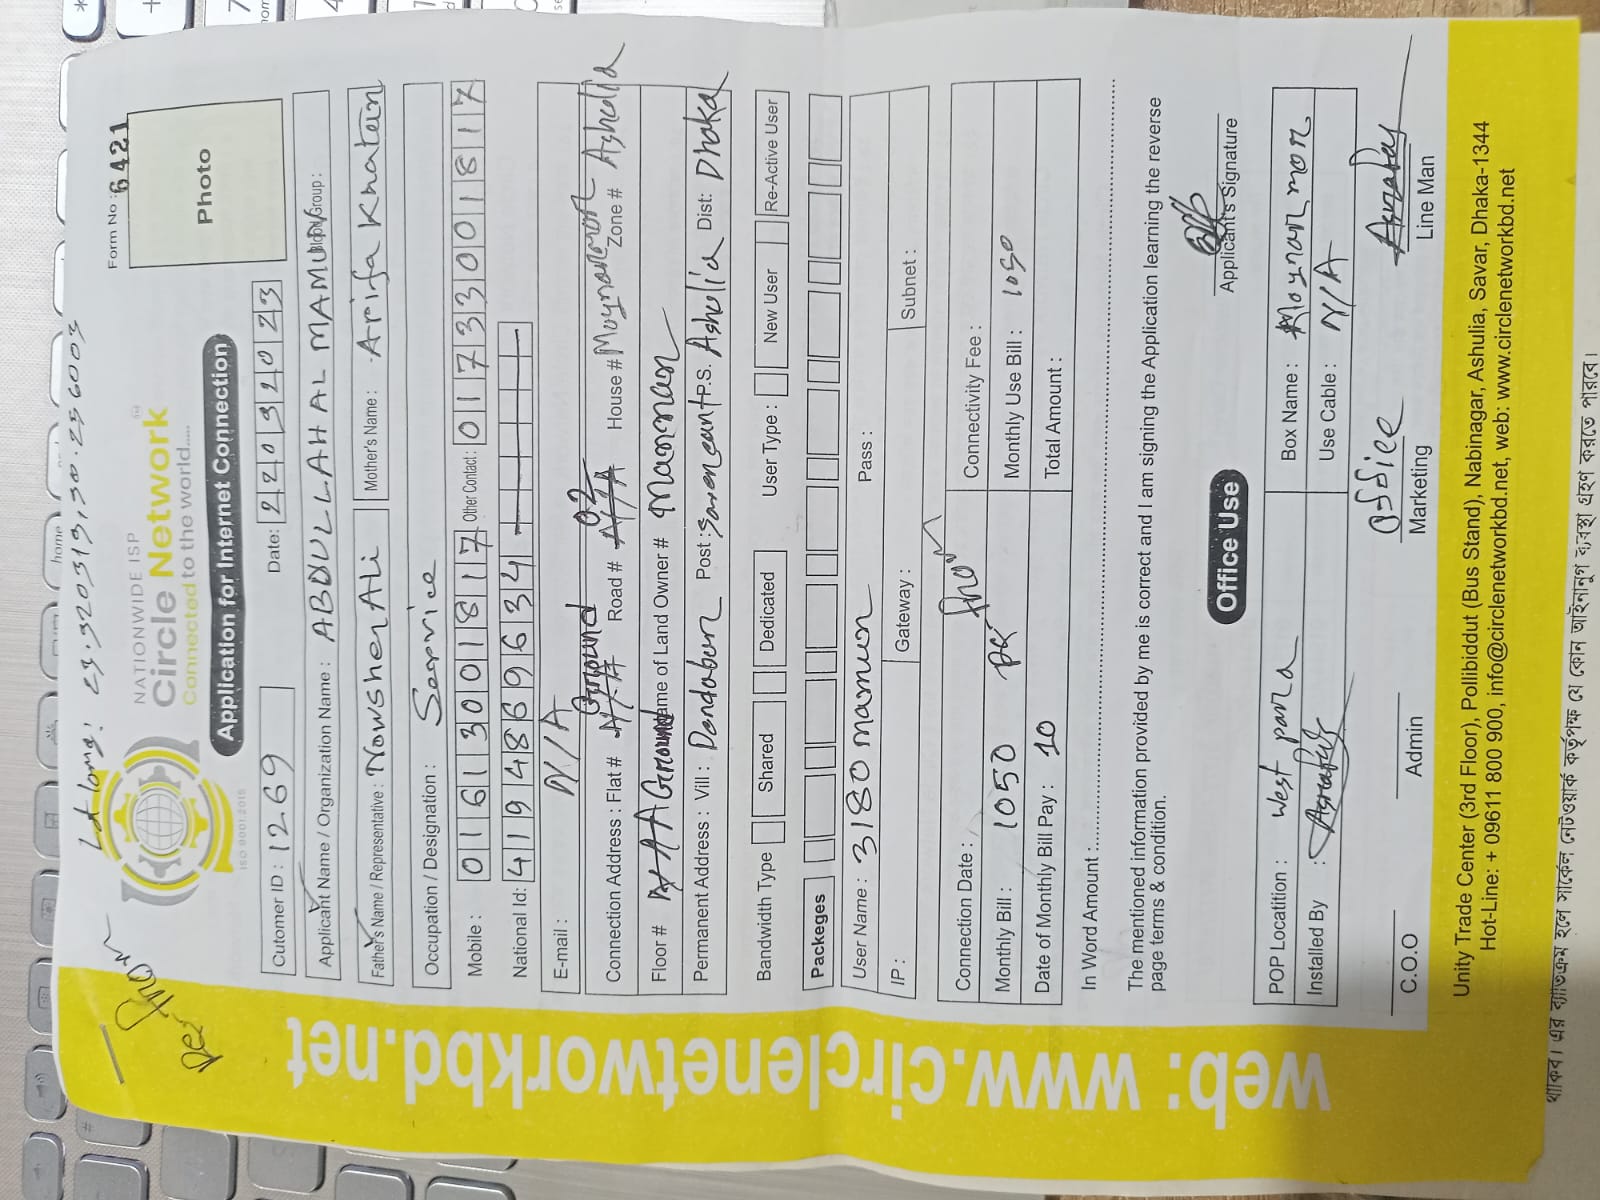 Lat long: 23.920319,90.256003
Form No : 6421
NATIONWIDE ISP
Circle Network
Connected to the world.....
ISO 9001:2015
Photo
Application for Internet Connection
Cutomer ID : 12269 Date: 22092023
Applicant Name / Organization Name : ABDULLAH AL MAMUN Group :
Father's Name / Representative : Nowsher Ali Mother's Name : Arifa Khatun
Occupation / Designation : Service
Mobile : 01613001817 Other Contact : 01733001817
National Id: 4194869634
E-mail : N/A
Connection Address : Flat # Ground Road # 02 House # Zone # Ashulia
Floor # Ground Name of Land Owner # Mannan
Permanent Address : Vill : Post : P.S. Ashulia Dist: Dhaka
Bandwidth Type Shared Dedicated User Type : New User Re-Active User
Packeges
User Name : 3180mamun Pass :
IP : Gateway : Subnet :
Connection Date : Connectivity Fee :
Monthly Bill : 1050 Monthly Use Bill : 1050
Date of Monthly Bill Pay : 10 Total Amount :
In Word Amount :
The mentioned information provided by me is correct and I am signing the Application learning the reverse
page terms & condition.
Applicant's Signature
Office Use
POP Locatition : West para Box Name : Moynar mor
Installed By : Use Cable : N/A
office
C.O.O Admin Marketing Line Man
Unity Trade Center (3rd Floor), Pollibiddut (Bus Stand), Nabinagar, Ashulia, Savar, Dhaka-1344
Hot-Line: + 09611 800 900, info@circlenetworkbd.net, web: www.circlenetworkbd.net
web: www.circlenetworkbd.net
থাকিব। এর ব্যতিক্রম হলে সার্কেল নেটওয়ার্ক কর্তৃপক্ষ যে কোন আইনানুগ ব্যবস্থা গ্রহণ করতে পারবে।
home